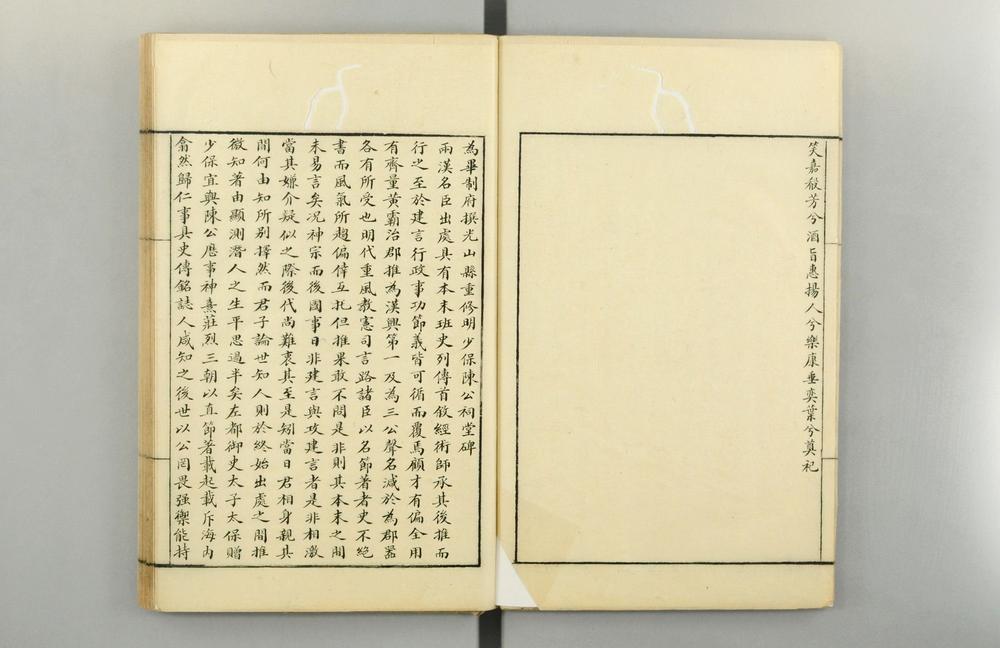 笑嘉殽芳兮酒旨惠揚人兮樂康垂奕葉兮奠祀
為畢制府撰光山縣重修明少保陳公祠堂碑
兩漢名臣出處具有本末班史列傳首敘經術師承其後推而
行之至於建言行政事功節義皆可循而覆焉顧才有偏全用
有齊量黃霸治郡推為漢興第一及為三公聲名減於為郡器
各有所受也明代重風教憲司言路諸臣以名節著者史不絕
書而風氣所趨偏倖互扺但推果敢不問是非則其本末之間
未易言矣况神宗而後國事日非建言與攻建言者是非相激
當其嫌介疑似之際後代尚難衷其至是矧當日君相身親其
間何由知所別擇然而君子論世知人則於終始出處之間推
微知著由顯測潛人之生平思過半矣左都御史太子太保贈
少保宜興陳公應事神熹莊烈三朝以直節著載起載斥海內
翕然歸仁事具史傳銘誌人咸知之後世以公罔畏强禦能持